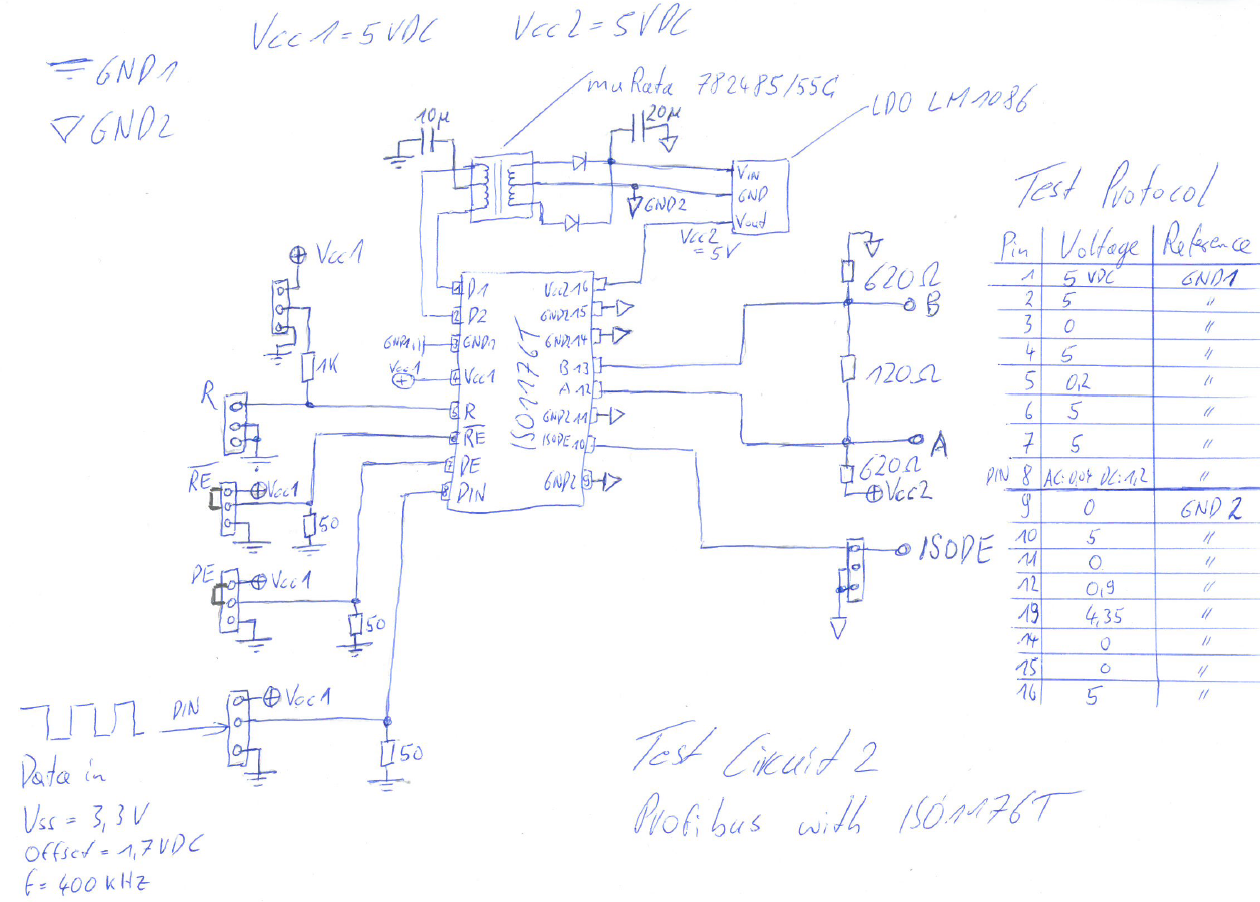 Vcc1 = 5VDC Vcc2 = 5VDC
GND1
GND2
muRata 782485/55C
LDO LM1086
10µ
20µ
VIN
GND
Vout
GND2
Vcc2
= 5V
Test Protocol
Pin Voltage Reference
1 5 VDC GND1
2 5 "
3 0 "
4 5 "
5 0,2 "
6 5 "
7 5 "
DIN 8 AC: 0,04 DC: 1,2 "
9 0 GND2
10 5 "
11 0 "
12 0,9 "
13 4,35 "
14 0 "
15 0 "
16 5 "
Vcc1
1K
R
RE
Vcc1
50
DE
Vcc1
50
DIN
Vcc1
50
GND1
Vcc1
1 D1
2 D2
3 GND1
4 Vcc1
5 R
6 RE
7 DE
8 DIN
ISO1176T
Vcc2 16
GND2 15
GND2 14
B 13
A 12
GND2 11
ISODE 10
GND2 9
620Ω
B
120Ω
A
620Ω
Vcc2
ISODE
Data in
Vss = 3,3V
Offset = 1,7VDC
f = 400 kHz
Test Circuit 2
Profibus with ISO1176T